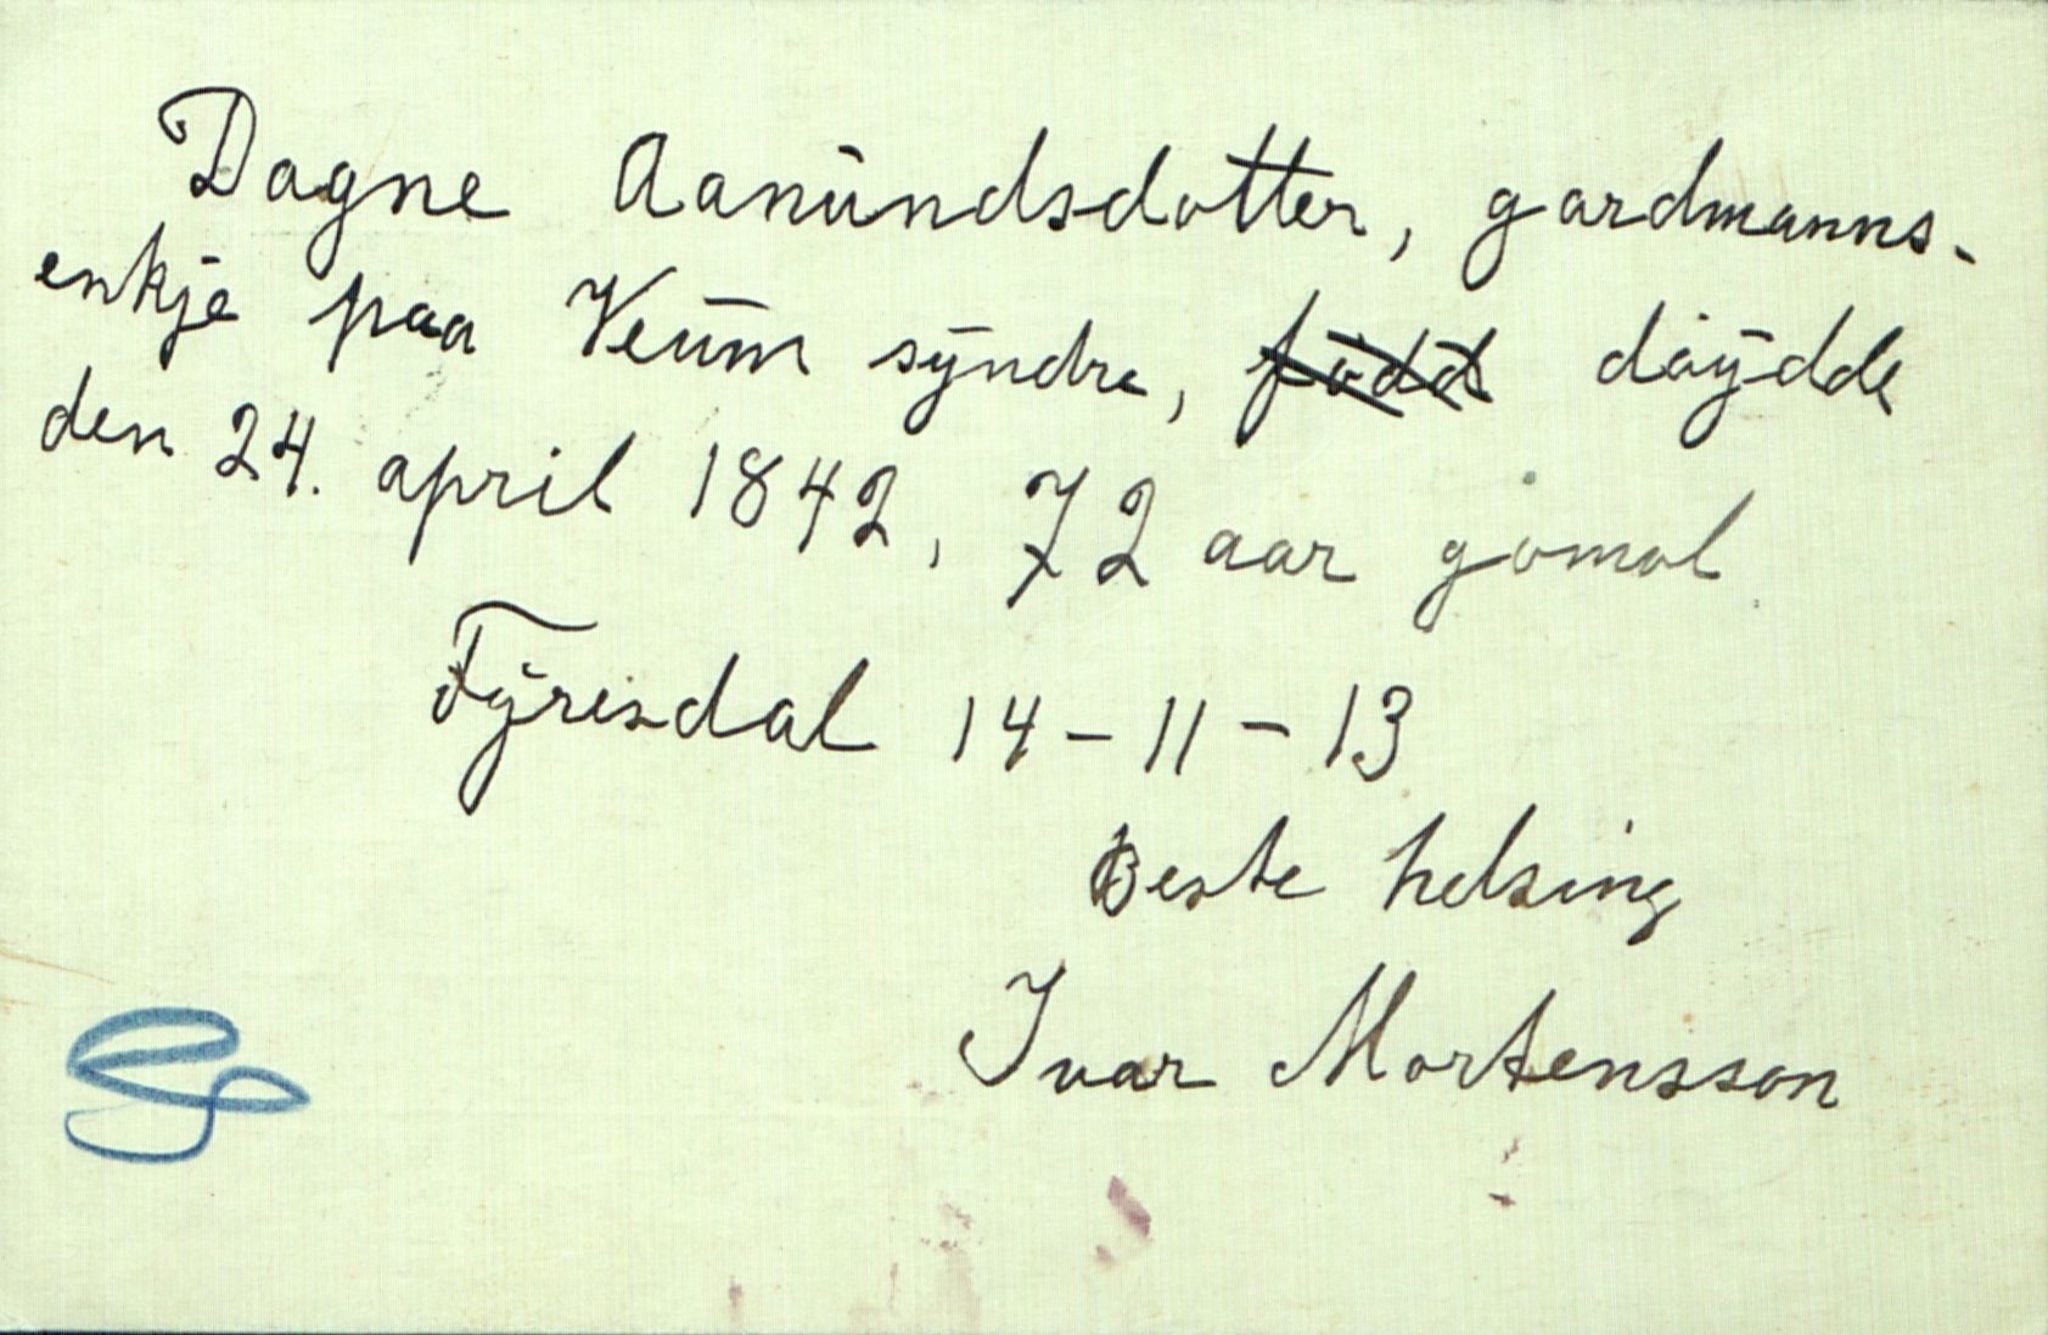 Dagne Aanundsdotter, gardmanns-
enkje paa Veum syndre, född döydde
den 24. april 1842, 72 aar gomol
Fyresdal 14-11-13
Beste helsing
Ivar Mortensson